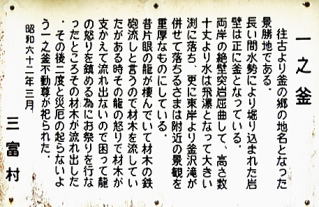 一之釜
往古より釜の郷の地名となった
景勝地である。
長い間水勢により堀り込まれた岩
壁は正に釜となっている。
両岸の絶壁突岩屈曲して、高さ数
十丈より水は飛瀑となって大きい
渕に落ち、更に東岸より釜沢滝が
併せて落ちるさまは附近の景観を
重厚なものにしている。
昔片眼の龍が棲んでいて材木の鉄
砲流しと言うもので材木を流してい
たがある時その龍の怒りで材木が
支かえて流れ出ないので困って龍
の怒りを鎮める為にお祭りを行な
ったところその材木が流れ出した
。その後二度と災厄の起らないよ
う一之釜不動尊が祀られた。
昭和六十二年三月、
三富村